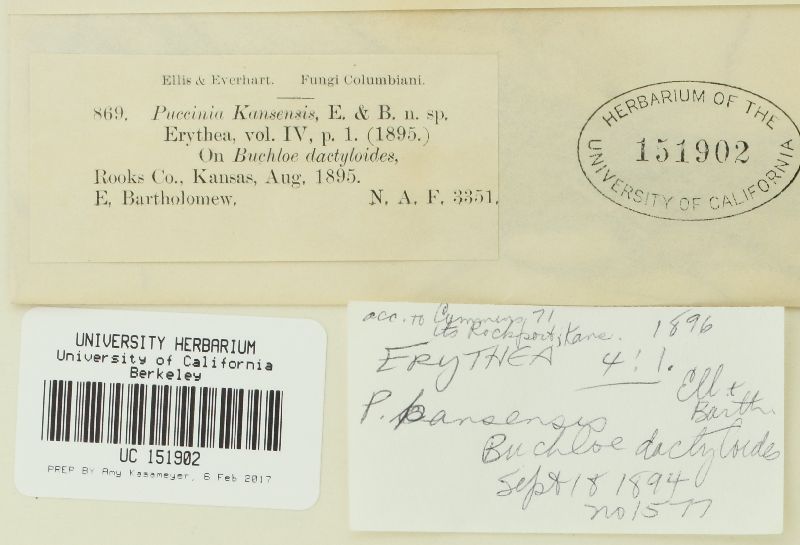 Ellis & Everhart. Fungi Columbiani.
869. Puccinia Kansensis, E. & B. n. sp.
Erythea, vol. IV, p. 1. (1895.)
On Buchloe dactyloides,
Rooks Co., Kansas, Aug. 1895.
E. Bartholomew. N. A. F. 3351.
HERBARIUM OF THE
151902
UNIVERSITY OF CALIFORNIA
UNIVERSITY HERBARIUM
University of California
Berkeley
UC 151902
PREP BY Amy Kasameyer, 6 Feb 2017
acc. to Cummins 71
its Rockport, Kans. 1896
ERYTHEA 4:1.
Ell &
Barth.
P. kansensis
Buchloe dactyloides
Sept 18 1894
no 1577